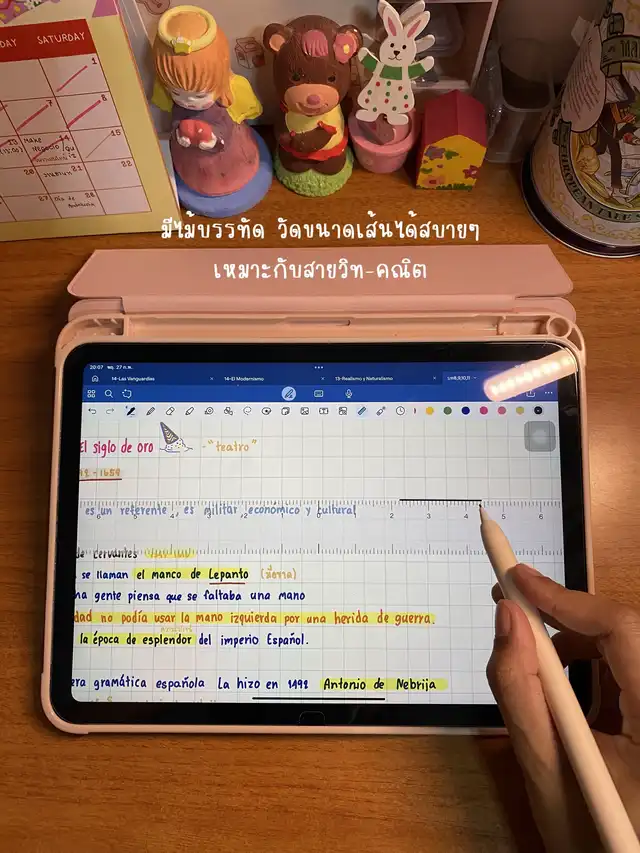 DAY SATURDAY
1
7 8
13 14
MAKE
15
20 21 22
27 28
มีไม้บรรทัด วัดขนาดเส้นได้สบายๆ
เหมาะกับสายวิท-คณิต
20:07 พฤ. 27 ก.พ.
14-Las Vanguardias 14-El Modernismo 13-Realismo y Naturalismo
El siglo de oro - "teatro"
- 1659
es un referente, es militar, económico y cultural
2 3 4 5 6
de Cervantes
se llaman el manco de Lepanto (มือขาด)
na gente piensa que se faltaba una mano
dad no podía usar la mano izquierda por una herida de guerra.
la época de esplendor del imperio Español.
era gramática española La hizo en 1492 Antonio de Nebrija